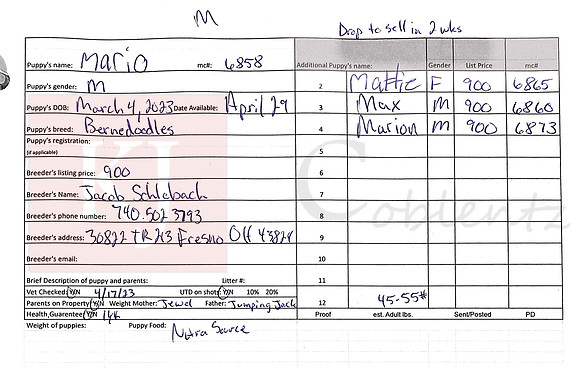 M
Drop to sell in 2 wks
Puppy's name: Mario mc#: 6858 Additional Puppy's name: Gender List Price mc#
Puppy's gender: M 2 Mattie F 900 6865
Puppy's DOB: March 4, 2023 Date Available: April 29 3 Max M 900 6860
Puppy's breed: Bernedoodles 4 Marion M 900 6873
Puppy's registration: 5
(if applicable)
Breeder's listing price: 900 6
Breeder's Name: Jacob Schlabach 7
Breeder's phone number: 740.502 3793 8
Breeder's address: 30822 TR 213 Fresno OH 43824 9
Breeder's email: 10
Brief Description of puppy and parents: Litter #: 11
Vet Checked: Y/N 4/17/23 UTD on shots: Y/N 10% 20%
Parents on Property Y/N Weight Mother: Jewel Father: Jumping Jack 12 45-55#
Health,Guarentee Y/N Proof est. Adult lbs. Sent/Posted PD
Weight of puppies: Puppy Food: Nutra Source
KJ Coblentz